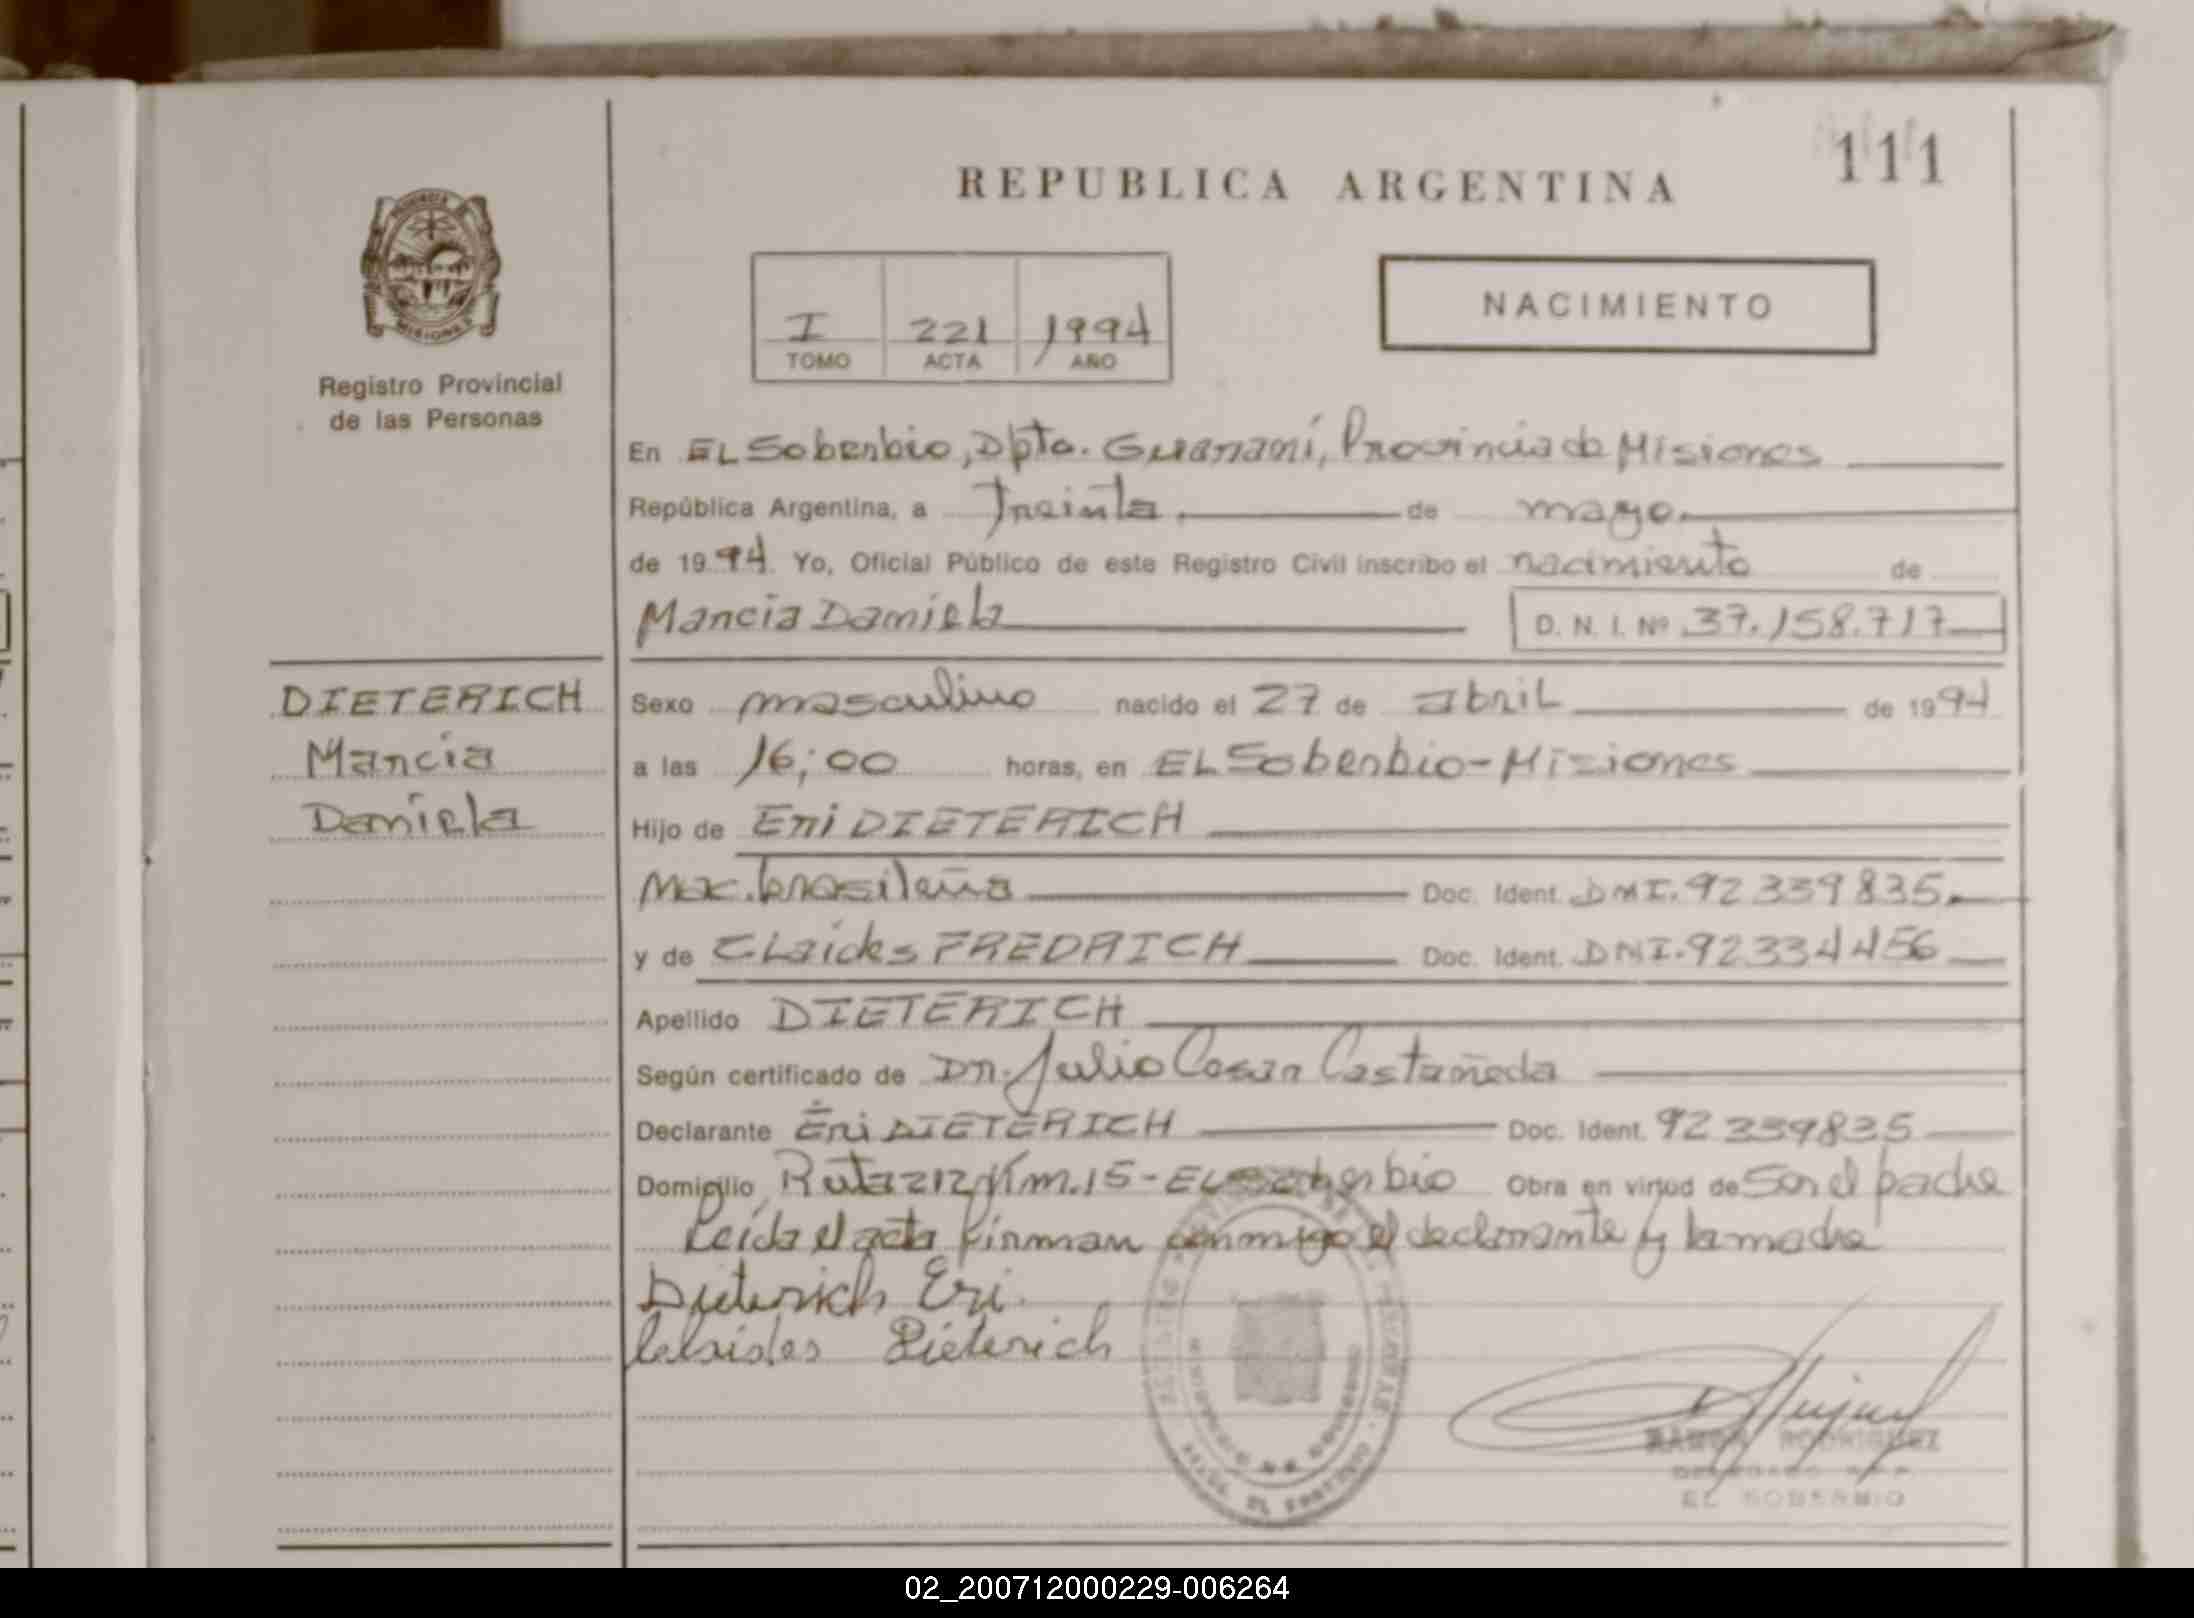 111
REPUBLICA ARGENTINA
PROVINCIA DE
MISIONES
Registro Provincial
de las Personas
I 221 1994
TOMO ACTA AÑO
NACIMIENTO
En El Soberbio, Dpto. Guaraní, Provincia de Misiones
República Argentina, a Treinta de mayo
de 1994 Yo, Oficial Público de este Registro Civil inscribo el nacimiento de
Marcia Daniela D. N. I. Nº 37.158.717
DIETERICH
Marcia
Daniela
Sexo masculino nacido el 27 de abril de 1994
a las 16:00 horas, en El Soberbio-Misiones
Hijo de Eri DIETERICH
Nac. brasileña Doc. Ident. DNI. 92339835
y de Claides FREDRICH Doc. Ident. DNI. 92334456
Apellido DIETERICH
Según certificado de Dr. Julio Cesar Castañeda
Declarante Eri DIETERICH Doc. Ident. 92339835
Domicilio Ruta 212 Km. 15 - El Soberbio Obra en virtud de Ser el padre
Leída el acta firman conmigo el declarante y la madre
Dieterich Eri.
Claides Dieterich
RAMON RODRIGUEZ
EL SOBERBIO
02_200712000229-006264